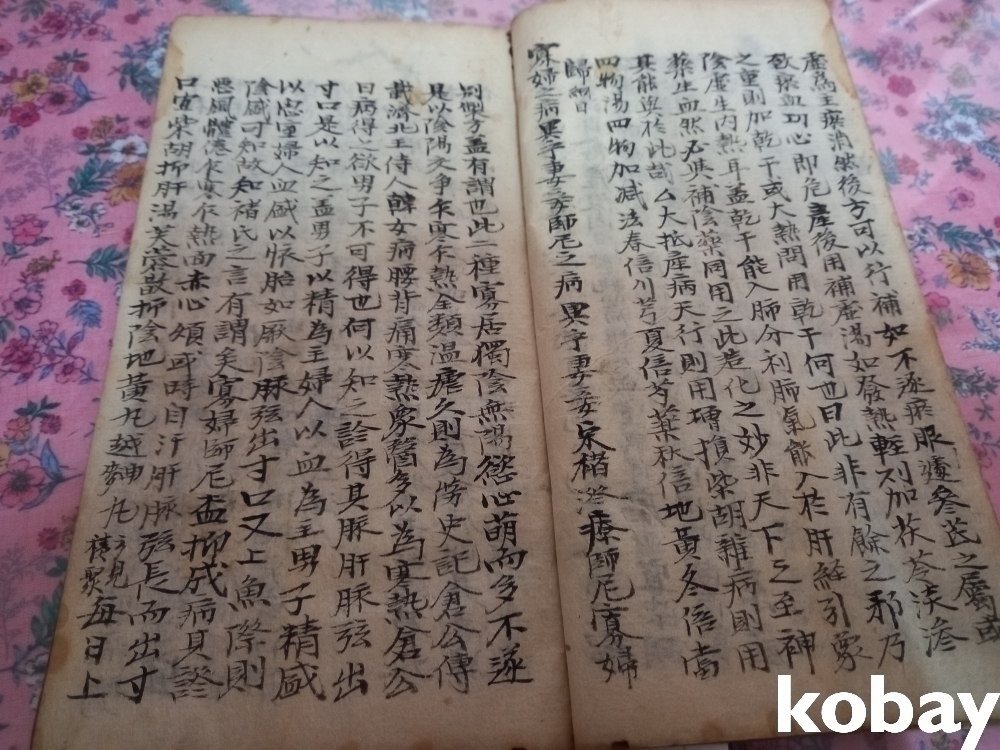 虛爲主瘀消然後方可以行補如不逐瘀服遽參芪之屬或
致瘀血功心即危產後用補虛湯如發熱輕刈加茯苓淡滲
之重則加乾干或大熱閒用乾干何也曰此非有餘之邪乃
陰虛生內熱耳盖乾干能入肺分利肺氣能入於肝經引衆
藥生血然必與補陰藥同用之此造化之妙非天下之至神
其能迄於此苛厶大抵産病天行則用增損柴胡雜病則用
四物湯四物加减法春倍川芎夏倍芍藥秋倍地黃冬倍當
歸
寡婦之病異乎妻妾師尼之病異乎妻妾宋褚澄療師尼寡婦
別製方盖有謂也此二種寡居獨陰無陽慾心萌而多不遂
是以陰陽交争乍寒乍熱全類温瘧久則為勞史記倉公傳
載濟北王侍人韓女病腰背痛寒熱衆醫多以為寒熱倉公
曰病得之欲男子不可得也何以知之診得其脈肝脈弦出
寸口是以知之盖男子以精為主婦人以血為主男子精盛
以思室婦人血盛以懷胎如厥陰脉弦出寸口又上魚際則
陰盛可知故知褚氏之言有謂矣寡婦師尼盃抑成病其證
惡風體倦乍寒乍熱面赤心煩或時自汗肝脈弦長而出寸
口宜柴胡抑肝湯芙蓉散抑陰地黃丸越神丸 每日上